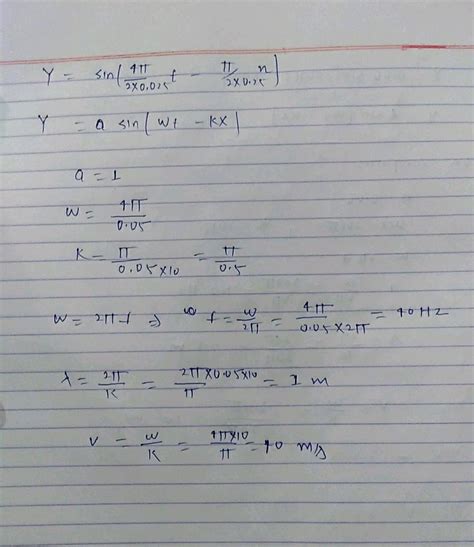 Y = sin(4π/2×0.025 t − π/2×0.25 x)
Y = a sin(wt − Kx)
a = 1
w = 4π/0.05
K = π/0.05×10 = π/0.5
w = 2πf f = w/2π = 4π/0.05×2π = 40 Hz
λ = 2π/K = 2π×0.05×10/π = 1 m
v = w/K = 4π×10/π = 40 m/s